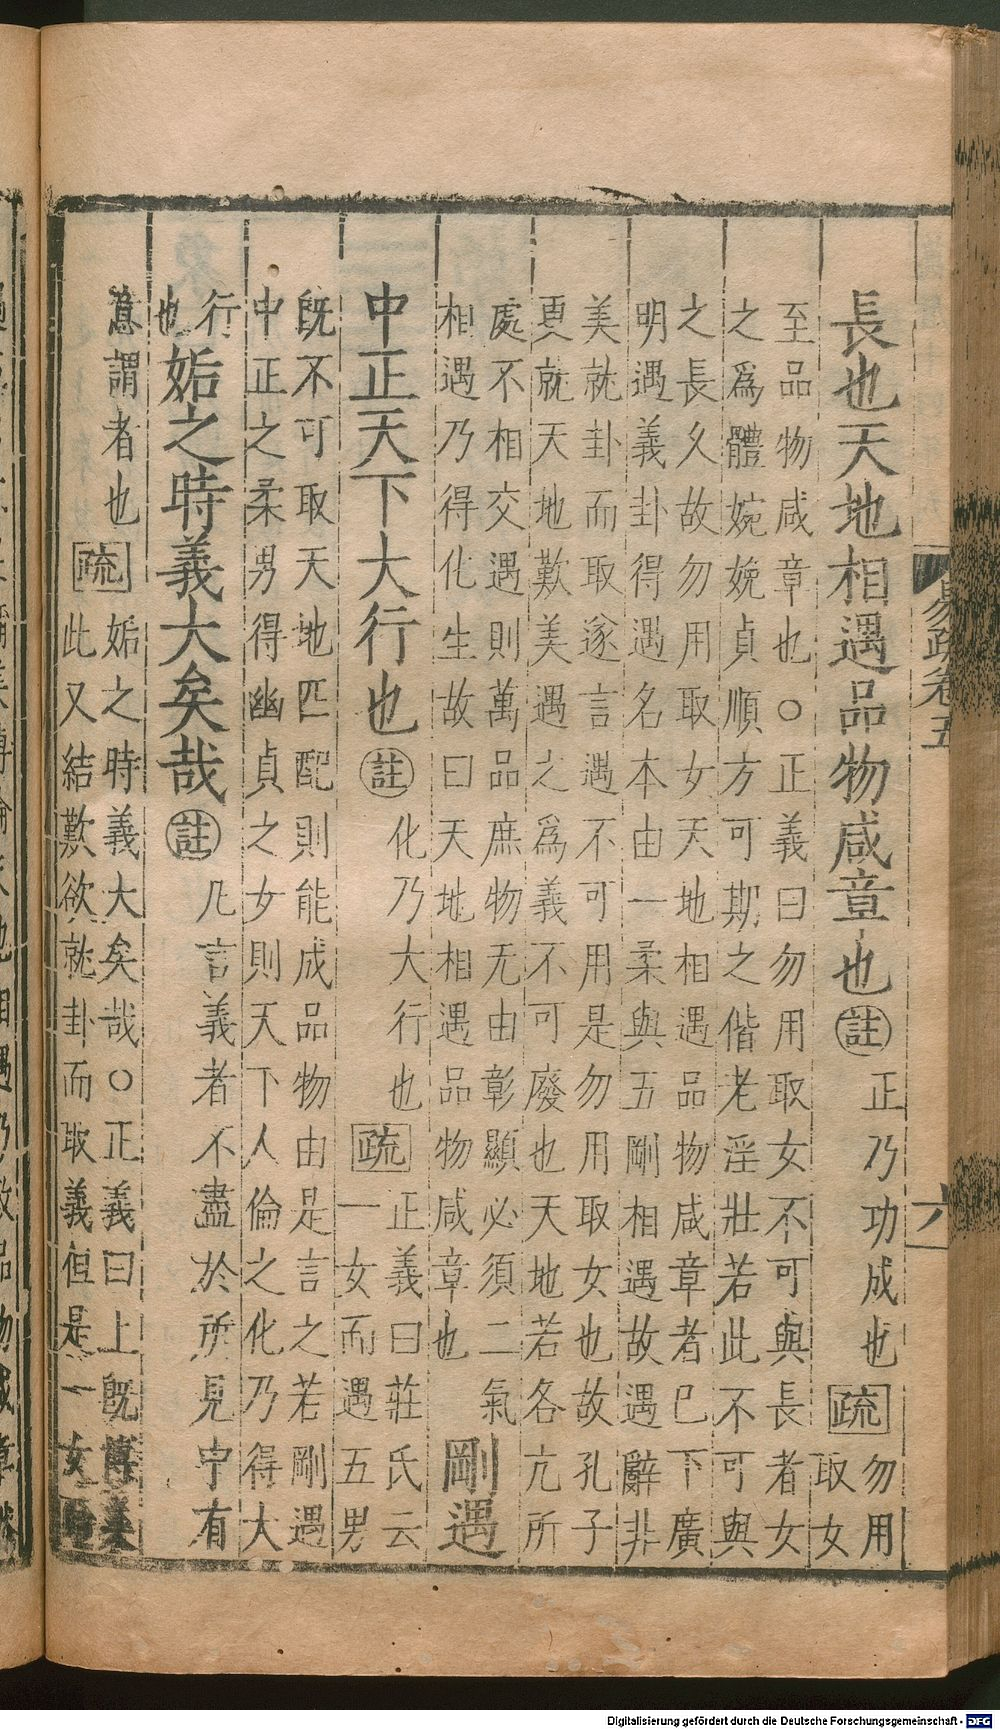 易疏卷五
六
長也天地相遇品物咸章也註正乃功成也疏勿用
取女
至品物咸章也○正義曰勿用取女不可與長者女
之爲體婉娩貞順方可期之偕老淫壯若此不可與
之長久故勿用取女天地相遇品物咸章者巳下廣
明遇義卦得遇名本由一柔與五剛相遇故遇辭非
美就卦而取遂言遇不可用是勿用取女也故孔子
更就天地歎美遇之爲義不可廢也天地若各亢所
處不相交遇則萬品庶物无由彰顯必須二氣
相遇乃得化生故曰天地相遇品物咸章也
剛遇
中正天下大行也註化乃大行也疏正義曰莊氏云
一女而遇五男
既不可取天地匹配則能成品物由是言之若剛遇
中正之柔男得幽貞之女則天下人倫之化乃得大
行
也
姤之時義大矣哉註凡言義者不盡於所見中有
意謂者也疏姤之時義大矣哉○正義曰上既博美
此又結歎欲就卦而取義但是一女
Digitalisierung gefördert durch die Deutsche Forschungsgemeinschaft - DFG